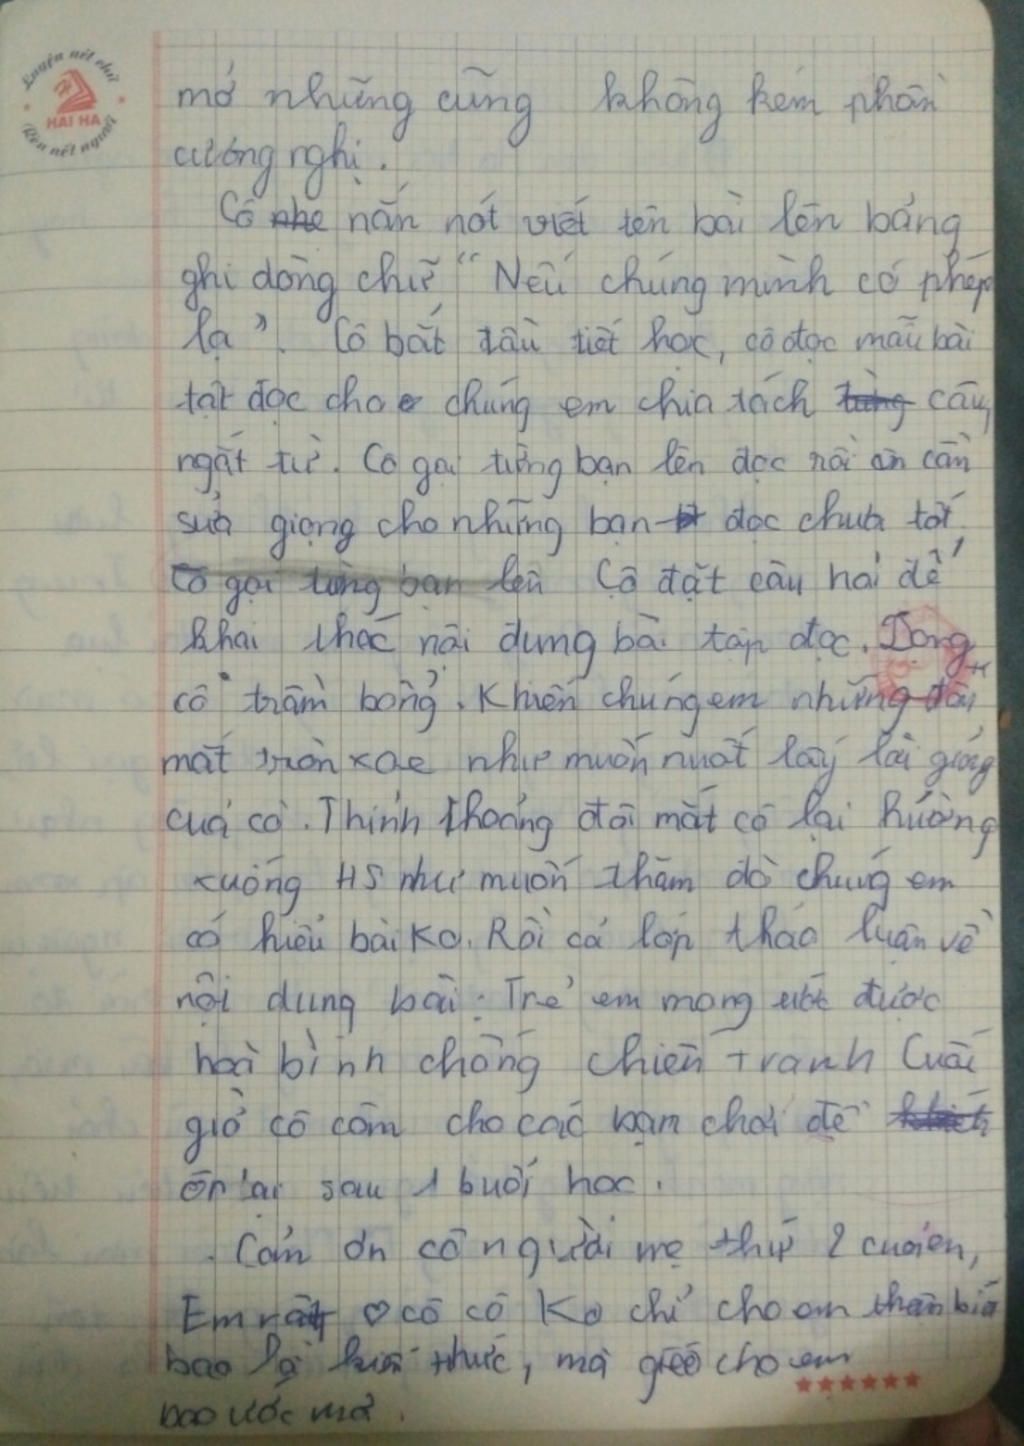 Luyện nét chữ
HAI HA
Rèn nét người
mở những cũng không kém phần
cương nghị.
Cô nhe nắn nót viết tên bài lên bảng
ghi dòng chữ “Nếu chúng mình có phép
lạ”. Cô bắt đầu tiết học, cô đọc mẫu bài
tập đọc cho e chúng em chia tách từng câu,
ngắt từ. Cô gọi từng bạn lên đọc rồi ân cần
sửa giọng cho những bạn đọc chưa tốt.
Cô gọi từng bạn lên Cô đặt câu hỏi để
khai thác nội dung bài tập đọc. Dọng
cô trầm bổng. Khiến chúng em những đôi
mắt tròn xoe như muốn nuốt lấy lời giảng
của cô. Thỉnh thoảng đôi mắt cô lại hướng
xuống HS như muốn thăm dò chúng em
có hiểu bài Ko. Rồi cả lớp thảo luận về
nội dung bài: Trẻ em mong ước được
hoà bình chống chiến tranh Cuối
giờ cô còn cho các bạn chơi để
ôn lại sau 1 buổi học.
Cảm ơn cô người mẹ thứ 2 của em,
Em rất ♡ cô cô Ko chỉ cho em thêm biết
bao là kiến thức, mà gieo cho em
bao ước mơ.